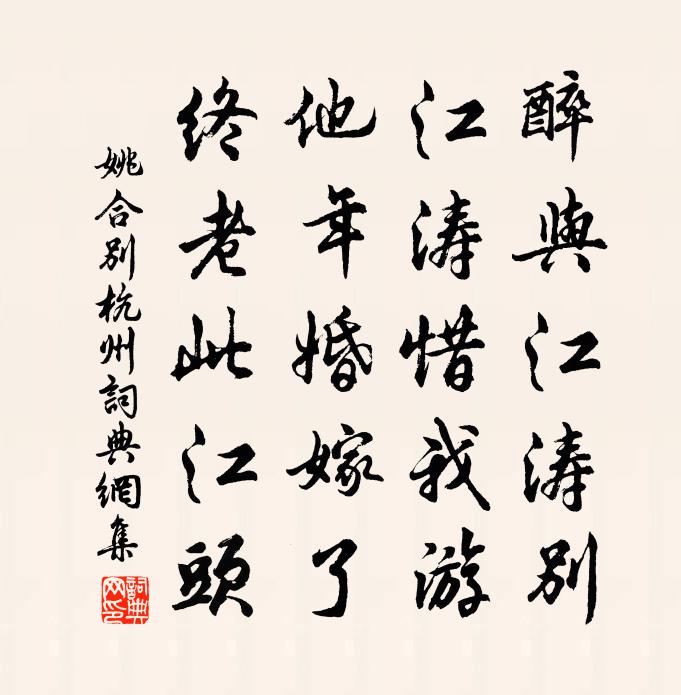 醉與江濤別
江濤惜我游
他年婚嫁了
終老此江頭
姚合別杭州詞典網集
詞典網印